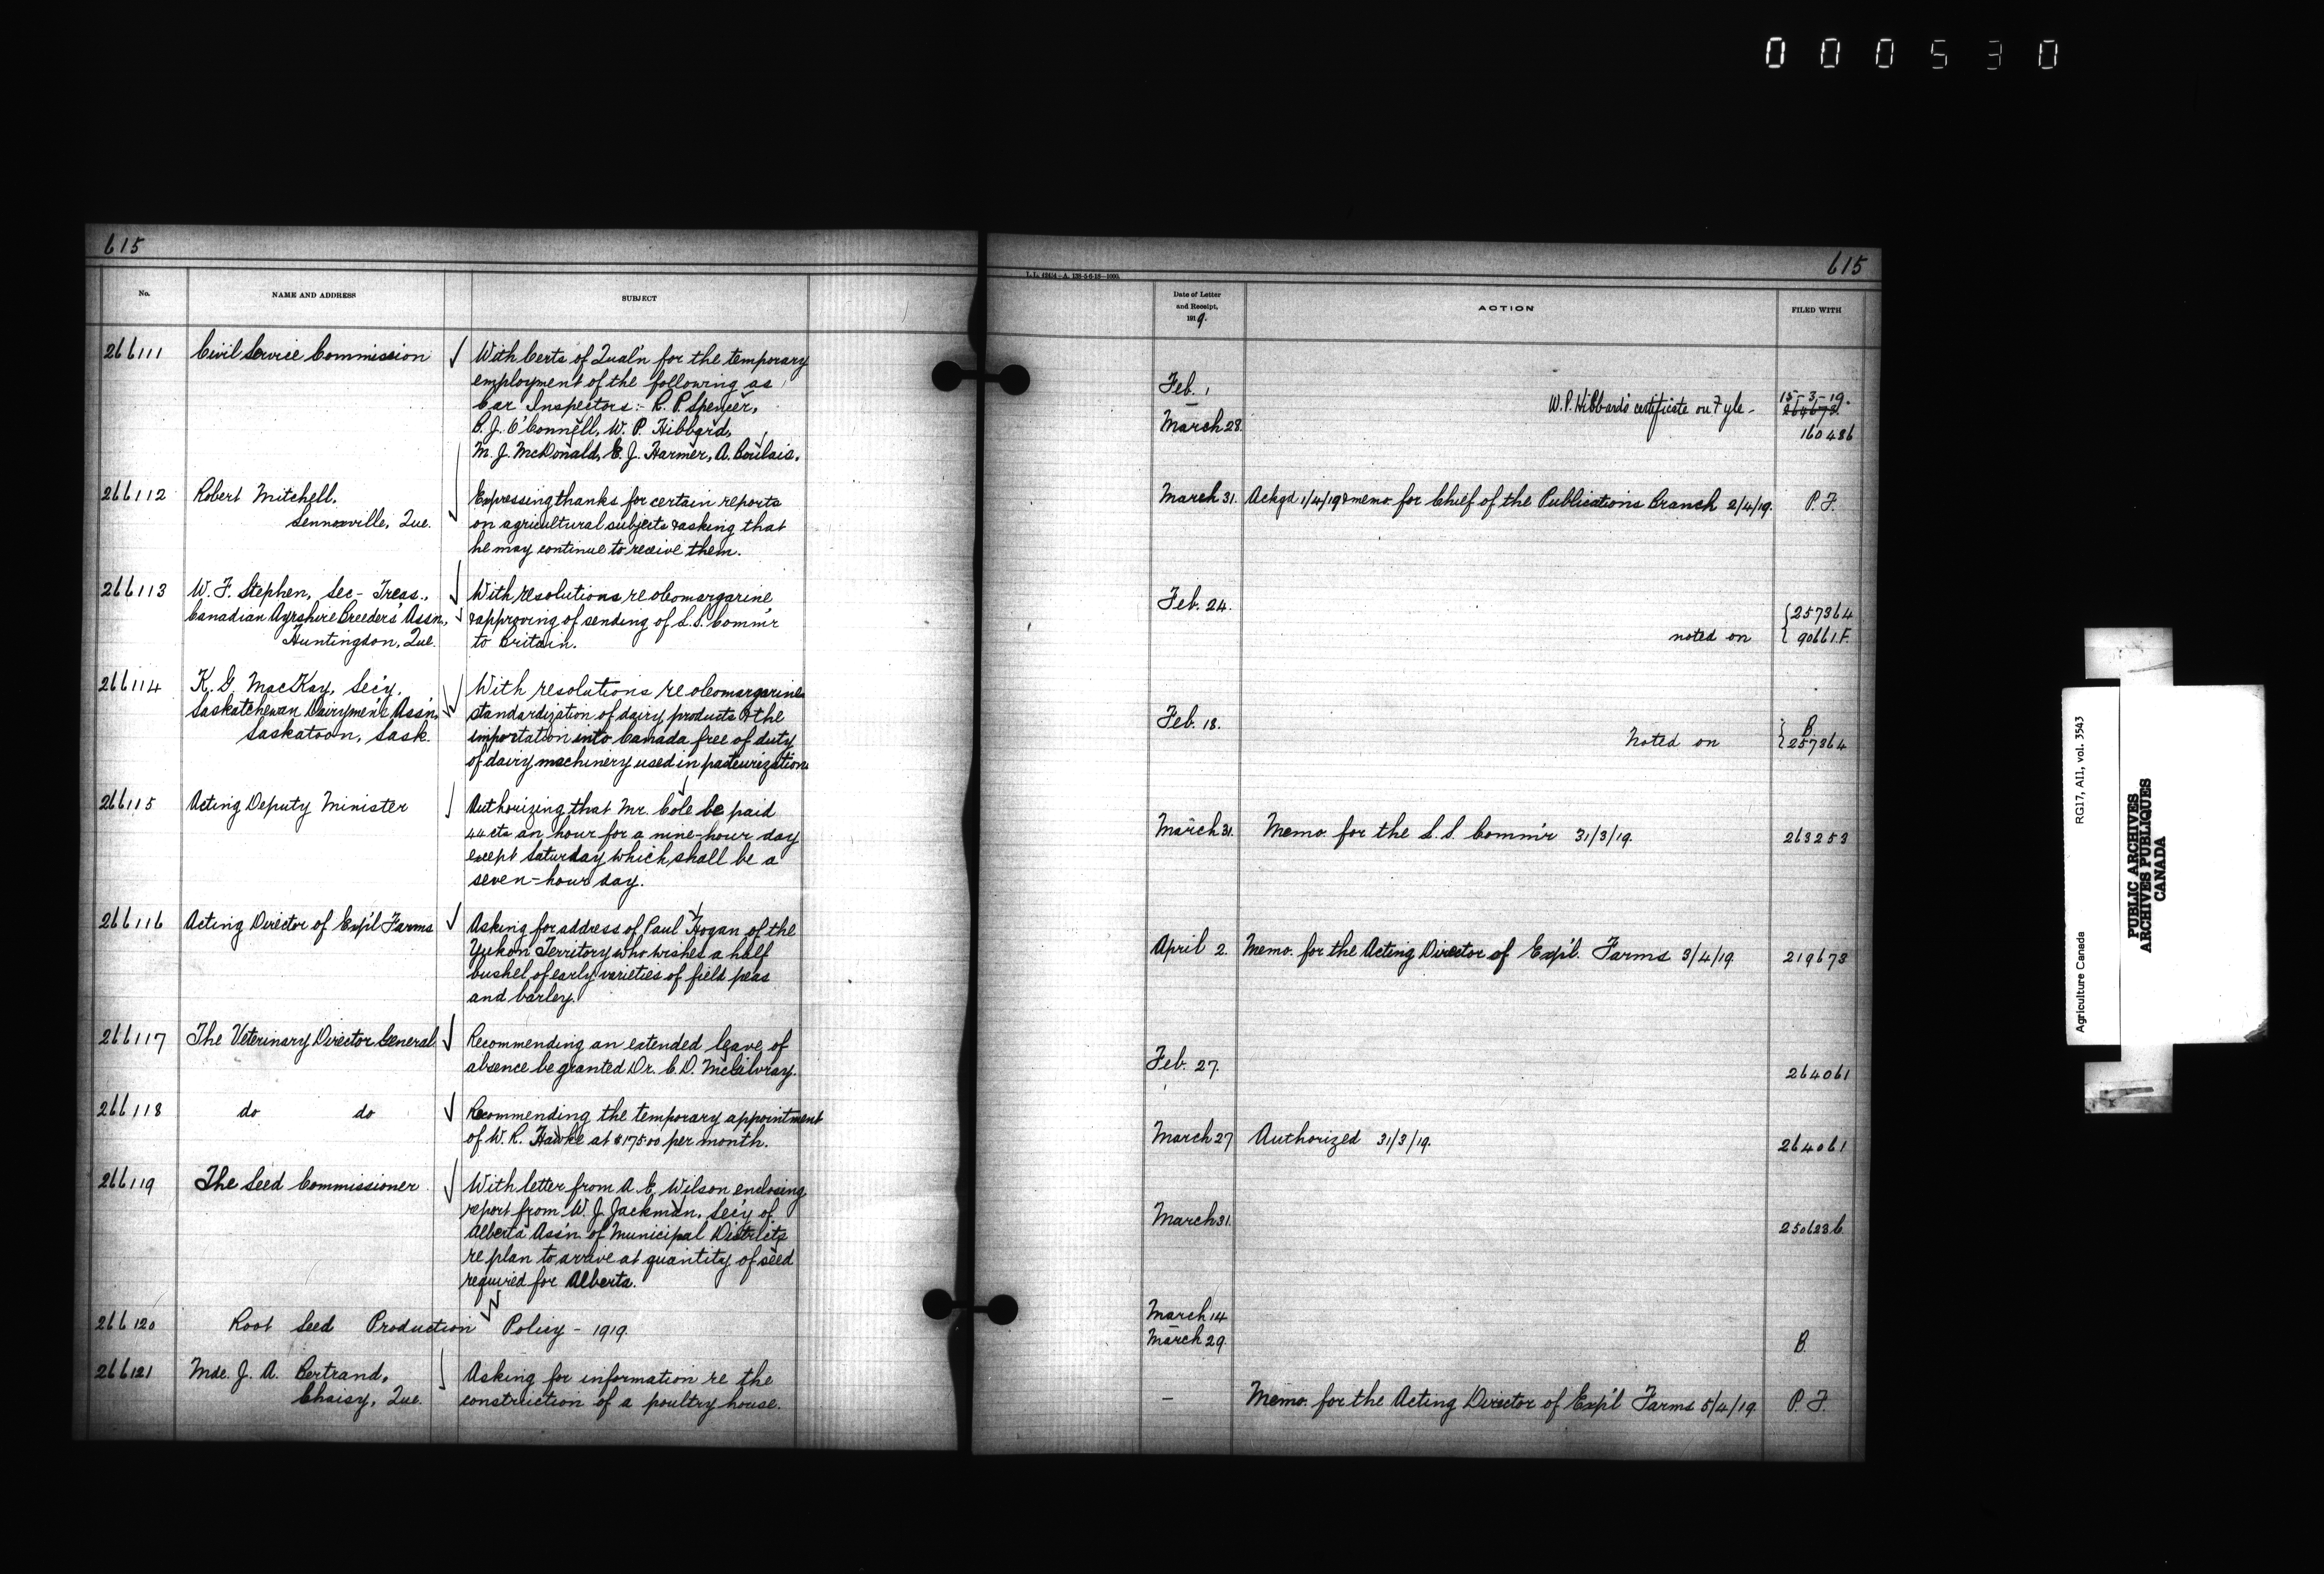 000530
615
No.
NAME AND ADDRESS
SUBJECT
266111
Civil Service Commission
With Certs of Qual'n for the temporary
employment of the following as
Car Inspectors:- R. P. Spencer,
B. J. O'Connell, W. P. Hibbard,
M. J. McDonald, E. J. Harmer, A. Boulais.
266112
Robert Mitchell,
Lennoxville, Que.
Expressing thanks for certain reports
on agricultural subjects & asking that
he may continue to receive them.
266113
W. F. Stephen, Sec- Treas.,
Canadian Ayrshire Breeders' Assn.,
Huntingdon, Que.
With resolutions re oleomargarine
& approving of sending of L.S. Comm'r
to Britain.
266114
K. G. MacKay, Sec'y,
Saskatchewan Dairymen's Ass'n,
Saskatoon, Sask.
With resolutions re oleomargarine
standardization of dairy products & the
importation into Canada free of duty
of dairy machinery used in pasteurization
266115
Acting Deputy Minister
Authorizing that Mr. Cole be paid
44 cts an hour for a nine-hour day
except Saturday which shall be a
seven-hour day.
266116
Acting Director of Exp'l Farms
Asking for address of Paul Hogan of the
Yukon Territory who wishes a half
bushel of early varieties of field peas
and barley.
266117
The Veterinary Director General
Recommending an extended leave of
absence be granted Dr. C. D. McGilvray.
266118
do do
Recommending the temporary appointment
of W. R. Hawke at $175.00 per month.
266119
The Seed Commissioner
With letter from A. E. Wilson enclosing
report from W. J. Jackman, Sec'y of
Alberta Ass'n of Municipal Districts
re plan to arrive at quantity of seed
required for Alberta.
266120
Root Seed Production Policy - 1919.
266121
Mde. J. A. Bertrand,
Chaisy, Que.
Asking for information re the
construction of a poultry house.
615
Date of Letter
and Receipt,
1919.
ACTION
FILED WITH
Feb. 1
March 28.
W. P. Hibbard's certificate on Fyle -
15-3-19.
264673.
160486
March 31.
Ackgd 1/4/19 & memo. for Chief of the Publications Branch 2/4/19.
P. F.
Feb. 24.
noted on
257364
90661.F.
Feb. 18.
Noted on
B.
257364
March 31.
Memo. for the L. S. Comm'r 31/3/19.
263253
April 2.
Memo. for the Acting Director of Exp'l. Farms 3/4/19
219673
Feb. 27.
264061
March 27
Authorized 31/3/19.
264061
March 31.
250623b
March 14
March 29.
B.
-
Memo. for the Acting Director of Exp'l Farms 5/4/19.
P. F.
Agriculture Canada
RG17, AII, vol. 3543
PUBLIC ARCHIVES
ARCHIVES PUBLIQUES
CANADA